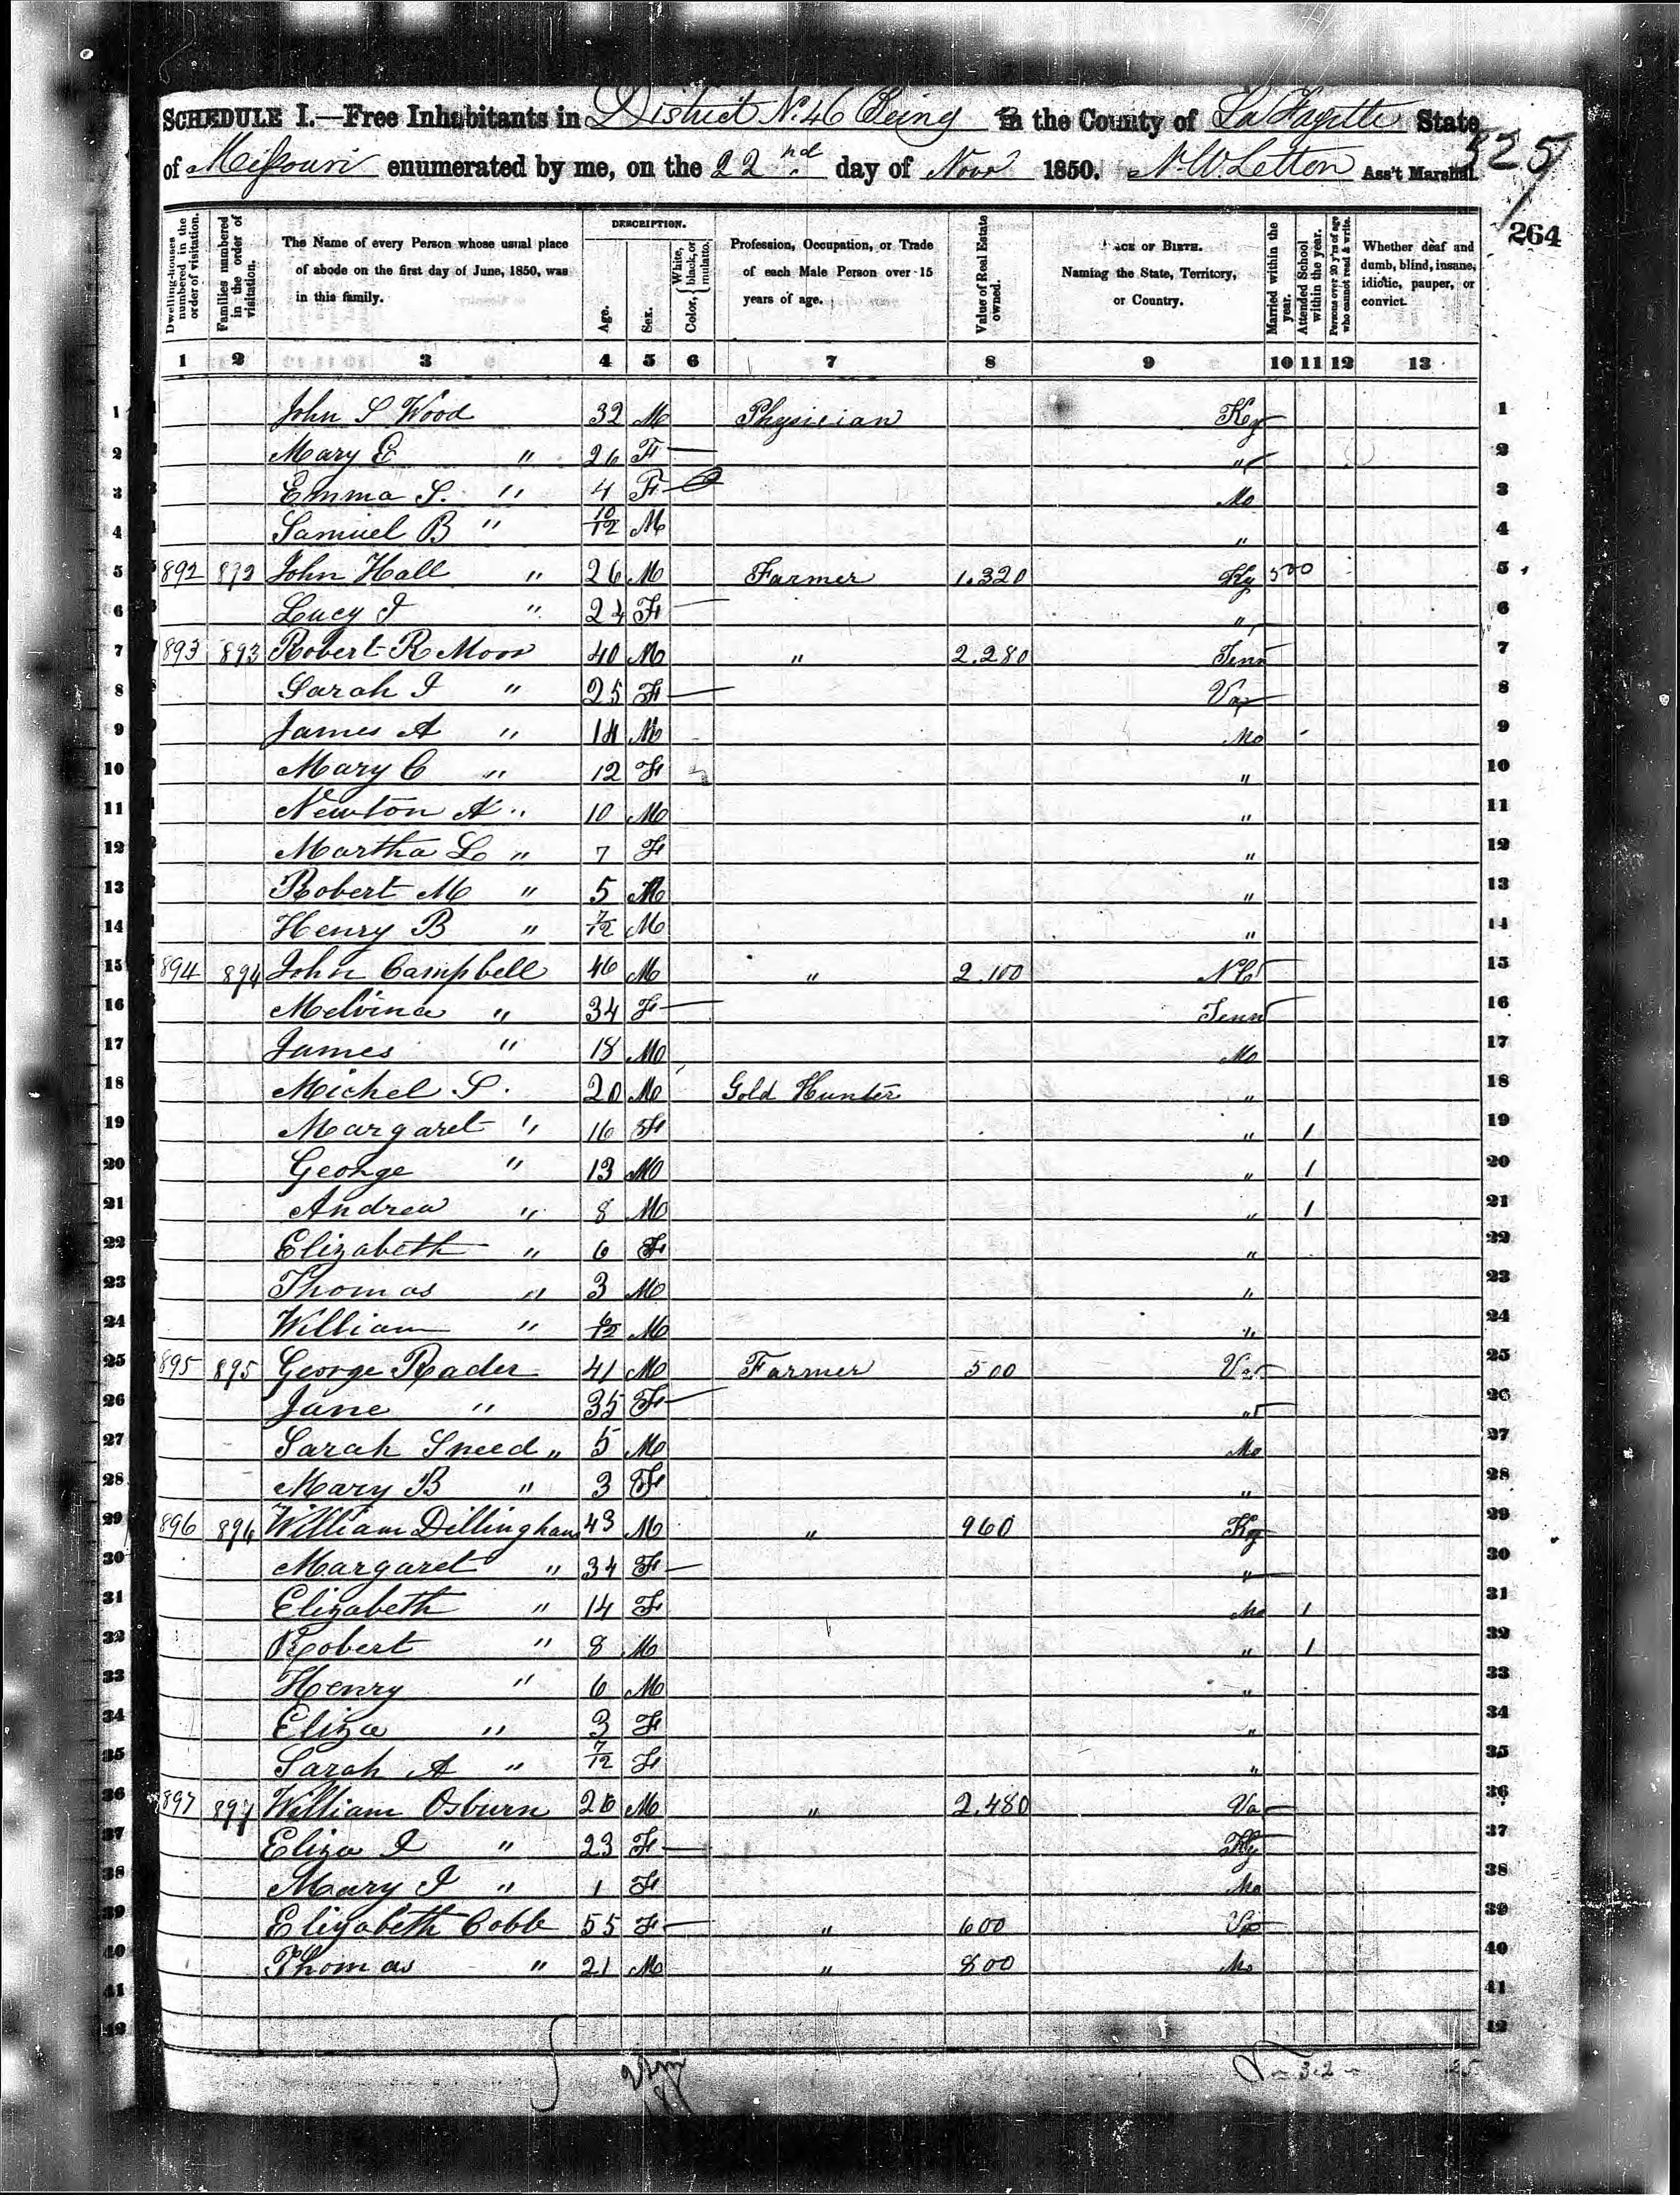 SCHEDULE I.—Free Inhabitants in District No. 46 Being in the County of La Fayette State
of Missouri enumerated by me, on the 22nd day of Novr 1850. N. W. Letton Ass't Marshal.
325
264
Dwelling-houses numbered in the order of visitation.
Families numbered in the order of visitation.
The Name of every Person whose usual place of abode on the first day of June, 1850, was in this family.
DESCRIPTION.
Age.
Sex.
Color, White, black, or mulatto.
Profession, Occupation, or Trade of each Male Person over 15 years of age.
Value of Real Estate owned.
ACE OF BIRTH. Naming the State, Territory, or Country.
Married within the year.
Attended School within the year.
Persons over 20 y'rs of age who cannot read & write.
Whether deaf and dumb, blind, insane, idiotic, pauper, or convict.
1 2 3 4 5 6 7 8 9 10 11 12 13
1 John S Wood 32 M Physician Ky 1
2 Mary E " 26 F " 2
3 Emma S. " 4 F Mo 3
4 Samuel B " 10/12 M " 4
5 892 892 John Hall " 26 M Farmer 1.320 Ky 500 5
6 Lucy J " 24 F " 6
7 893 893 Robert R Moor 40 M " 2.280 Tenn 7
8 Sarah J " 25 F Va 8
9 James A " 14 M Mo 9
10 Mary C " 12 F " 10
11 Newton A " 10 M " 11
12 Martha L " 7 F " 12
13 Robert M " 5 M " 13
14 Henry B " 7/12 M " 14
15 894 894 John Campbell 46 M " 2.100 N C 15
16 Melvina " 34 F Tenn 16
17 James " 18 M Mo 17
18 Michel S. 20 M Gold Hunter " 18
19 Margaret " 16 F " 1 19
20 George " 13 M " 1 20
21 Andrew " 8 M " 1 21
22 Elizabeth " 6 F " 22
23 Thomas " 3 M " 23
24 William " 6/12 M " 24
25 895 895 George Rader 41 M Farmer 500 Va 25
26 Jane " 35 F " 26
27 Sarah Sneed " 5 M Mo 27
28 Mary B " 3 F " 28
29 896 896 William Dillingham 43 M " 960 Ky 29
30 Margaret " 34 F " 30
31 Elizabeth " 14 F Mo 1 31
32 Robert " 8 M " 1 32
33 Henry " 6 M " 33
34 Eliza " 3 F " 34
35 Sarah A " 7/12 F " 35
36 897 897 William Osburn 26 M " 2.480 Va 36
37 Eliza J " 23 F Ky 37
38 Mary J " 1 F Mo 38
39 Elizabeth Cobb 55 F " 600 Va 39
40 Thomas " 21 M " 800 Mo 40
41 41
42 42
32 25